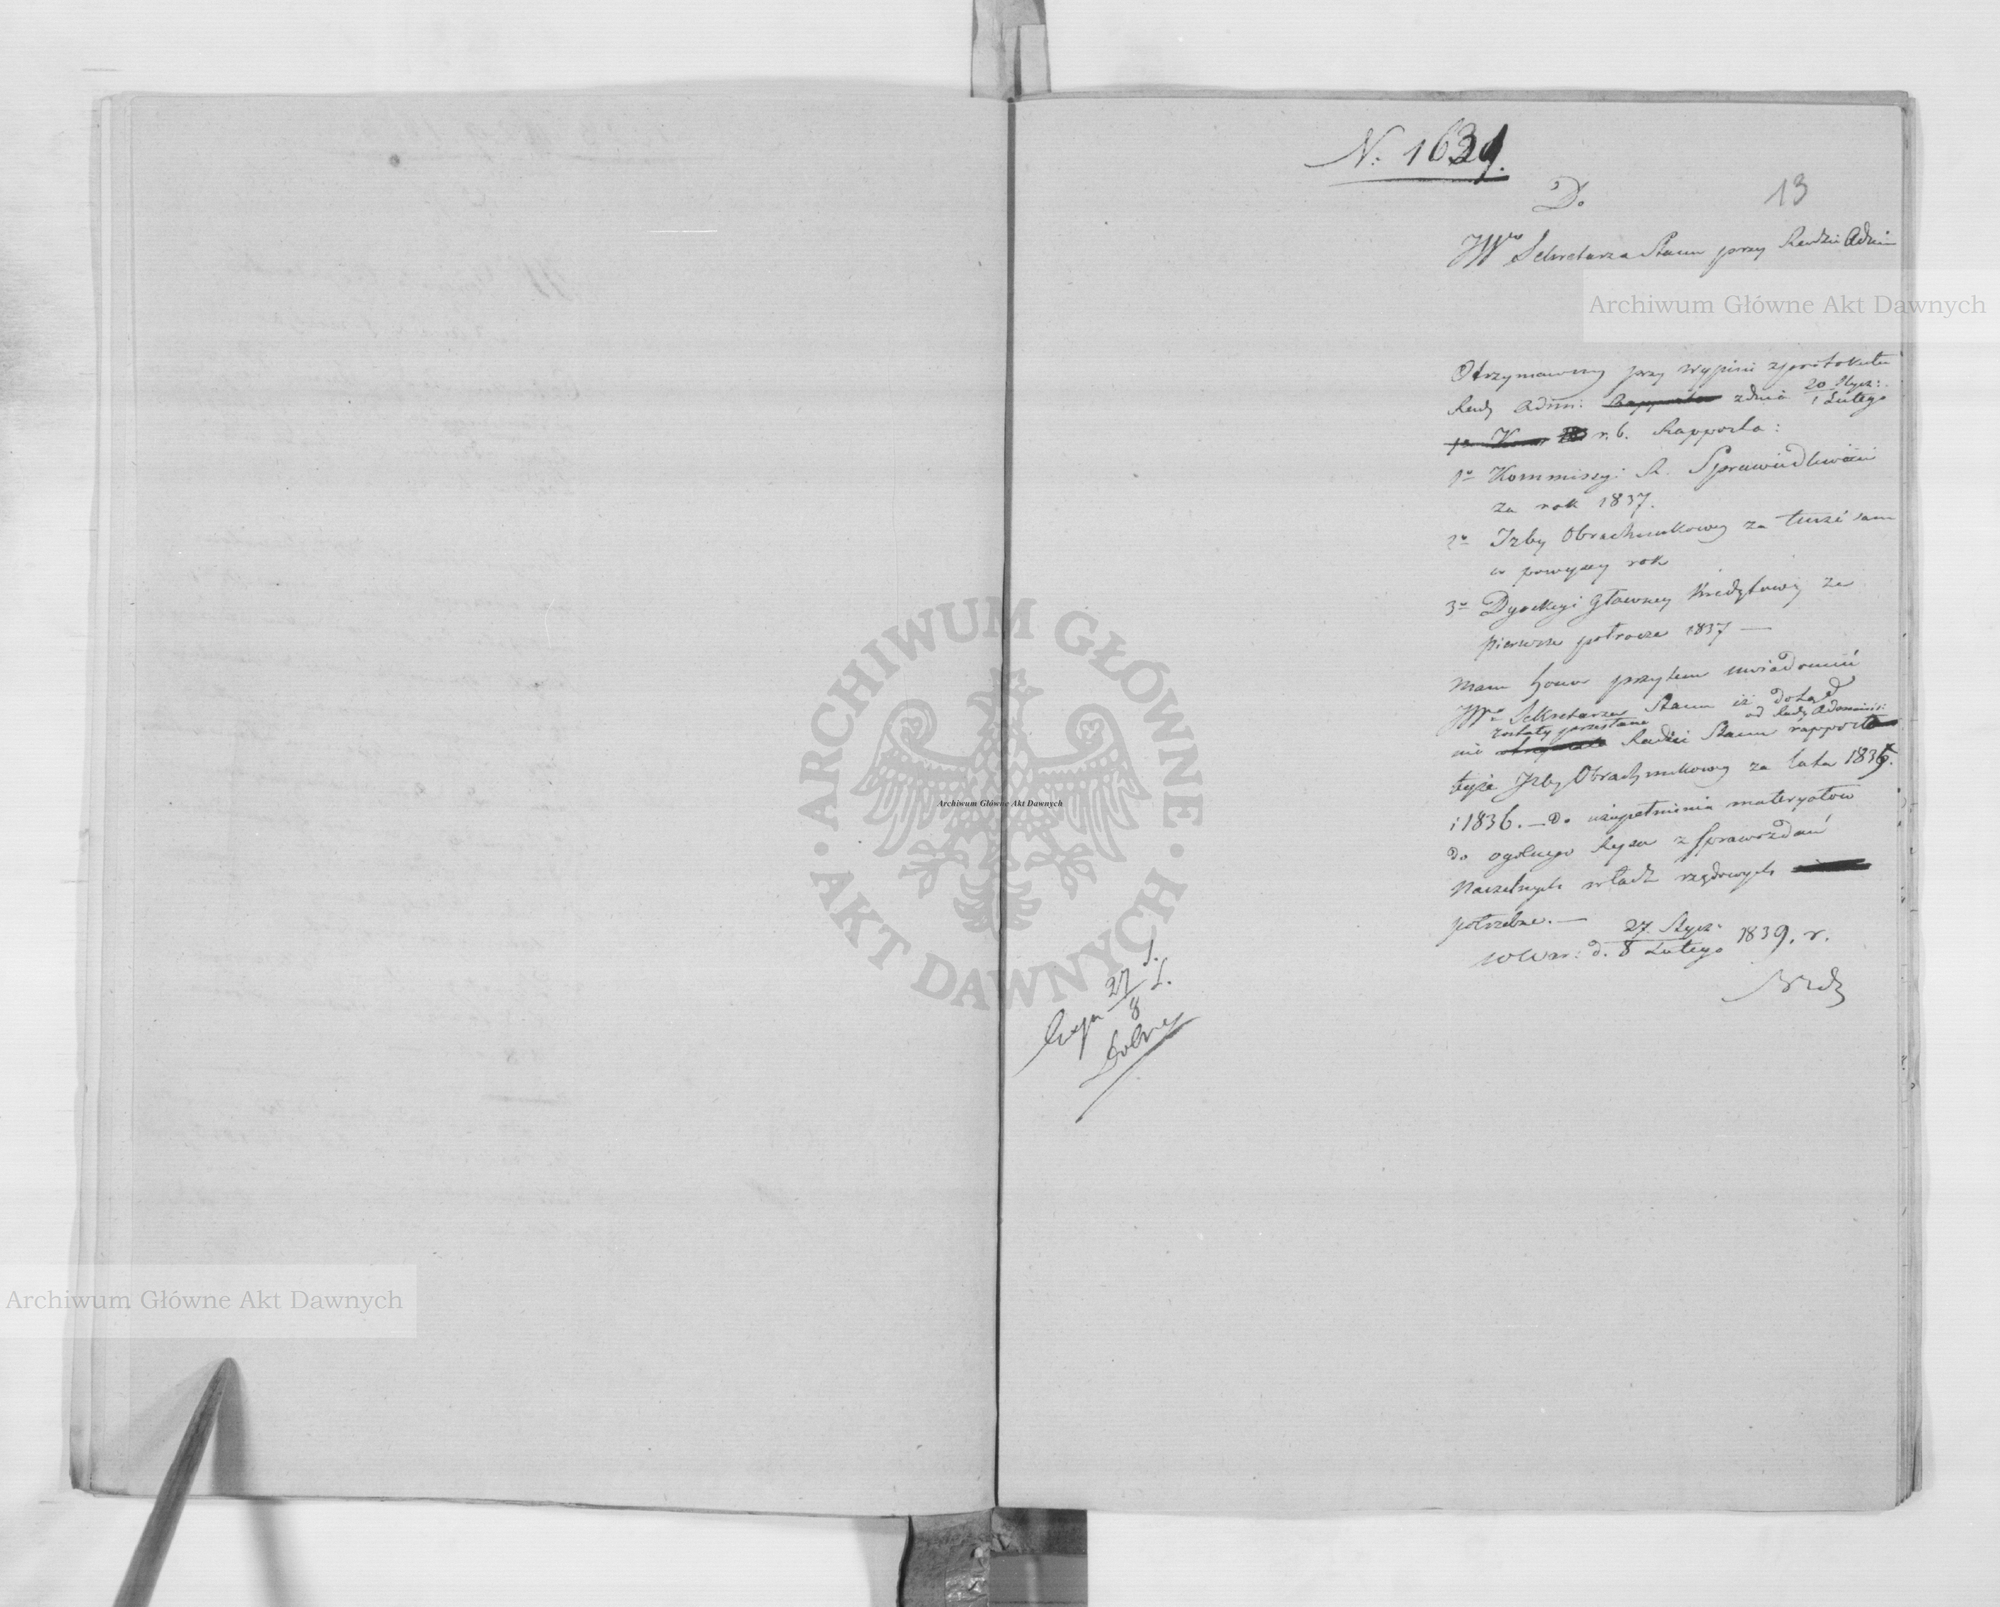 N. 1639.
13
Do
JWo Sekretarza Stanu przy Radzie Admin
Archiwum Główne Akt Dawnych
Otrzymawszy przy wypisie z protokułu
Rady Adm: Rapporta z dnia 20 Stycz: / 1 Lutego
r. b. Rapporta:
1o Kommissyi R. Sprawiedliwości
za rok 1837.
2o Izby Obrachunkowey za tenże sam
powyższy rok
3o Dyrekcyi Główney Kredytowey za
pierwsze półrocze 1837 —
mam honor przytem uwiadomić
JWo Sekretarza Stanu iż dotąd
zostały przesłane od Rady Administ:
nie Radzie Stanu rapporta
teyże Izby Obrachunkowey za lata 1835.
i 1836. — Do uzupełnienia materyałów
do ogólnego Rysu z Sprawozdań
Naczelnych władz rządowych
potrzebne. —
w War: d. 27 Stycz: / 8 Lutego 1839. r.
27 S.
8 L.
ARCHIWUM GŁÓWNE
AKT DAWNYCH
Archiwum Główne Akt Dawnych
Archiwum Główne Akt Dawnych